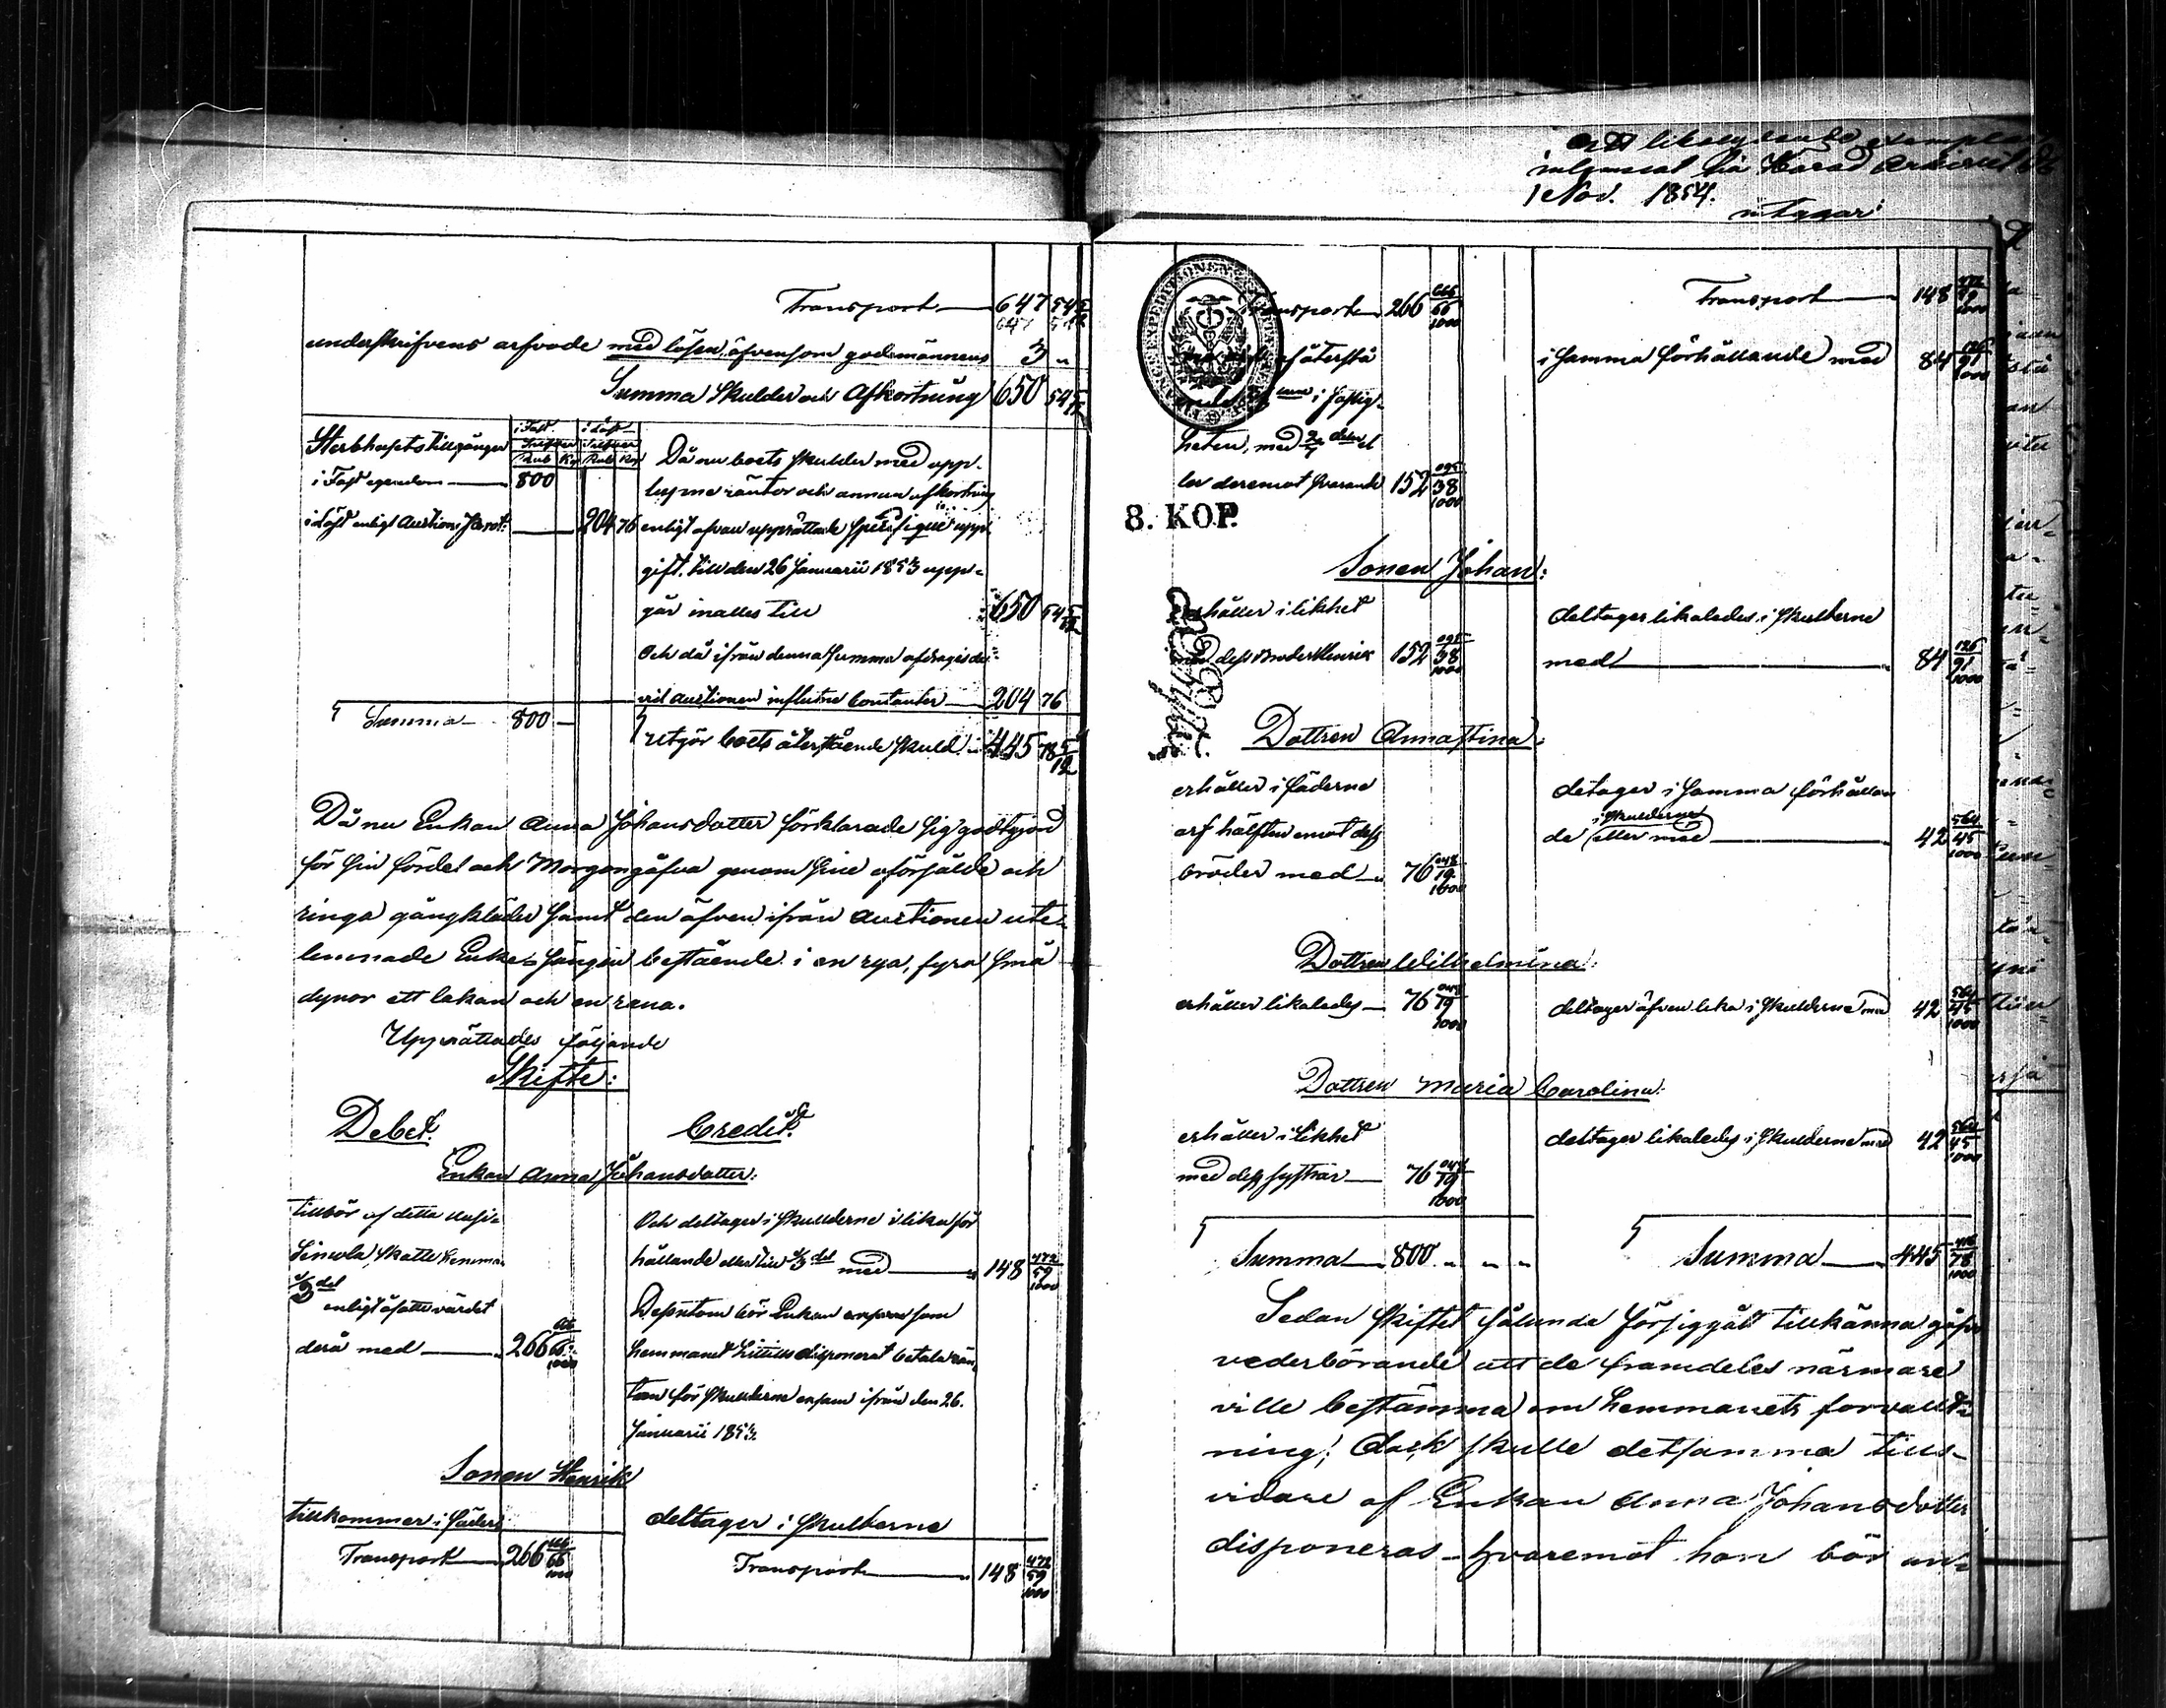 Transport 647 54 5/12
underskrifvens arfvode med lösen, äfvensom godemännens 3 "
Summa Skulder och Afkortning 650 54 5/12
Sterbhusets tillgångar
i Fast
Silfver
Rub Kop
i Löst
Silfver
Rub Kop
i Fast egendom 800
i Löst enligt Auctions Prot: 204 76
Summa 800
Då nu boets skulder med upp-
lupne räntor och annan afkortning
enligt ofvan upprättade specifique upp
gift, till den 26 Januarii 1853 upp-
går inalles till 650 54 5/12
Och då ifrån denna Summa afdrages de
vid Auctionen influtne Contanter 204 76
utgör boets återstående skuld 445 78 5/12
Då nu Enkan Anna Johansdotter förklarade sig godtgjord
för sin fördel och Morgongåfva genom sine oförsålde och
ringa gångkläder samt den äfven ifrån Auctionen ute
lemnade Enkesängen bestående i en rya, fyra små
dynor ett lakan och en rana.
Upprättades följande
Skifte:
Debet.
Credit.
Enkan Anna Johansdotter:
tillhör af detta
Skatte hemman
1/3 del
enligt åsatte värdet
derå med 266 66 666/1000
Och deltager i Skulderne i lika för
hållande eller till 1/3 del med 148 59 472/1000
Dessutom bör Enkan ensam som
hemmanet hittills disponerat betala rän
tan för Skulderne ensam ifrån den 26.
Januarii 1853.
Sonen Henrik
tillkommer i fäders
Transport 266 66 666/1000
deltager i Skulderne
Transport 148 59 472/1000
ett likalydande exemplar
inlemnat
1 Nov. 1854.
intygar
Transport 266 66 666/1000
återstå
i fastig-
heten, med 2/7 delar el
ler deremot svarande 152 38 095/1000
8. KOP.
Transport 148 59 472/1000
i samma förhållande med 84 91 126/1000
Sonen Johan:
erhåller i likhet
med dess Broder Henrik 152 38 095/1000
deltager likaledes i Skulderne
med 84 91 126/1000
Dottren Annastina:
erhåller i fäderne
arf hälften emot dess
bröder med 76 19 048/1000
deltager i samma förhållan
i skulderne
de eller med 42 45 564/1000
Dottren Wilhelmina:
erhåller likaledes 76 19 048/1000
deltager äfven lika i Skulderne med 42 45 564/1000
Dottren Maria Carolina:
erhåller i likhet
med dess systrar 76 19 048/1000
deltager likaledes i Skulderne med 42 45 564/1000
Summa 800 " " "
Summa 445 78 416/1000
Sedan Skiftet sålunda försiggått tillkänna gåfvo
vederbörande att de framdeles närmare
ville bestämma om hemmanets forvalt-
ning; dock skulle detsamma tills-
vidare af Enkan Anna Johansdotter
disponeras hvaremot hon bör an-